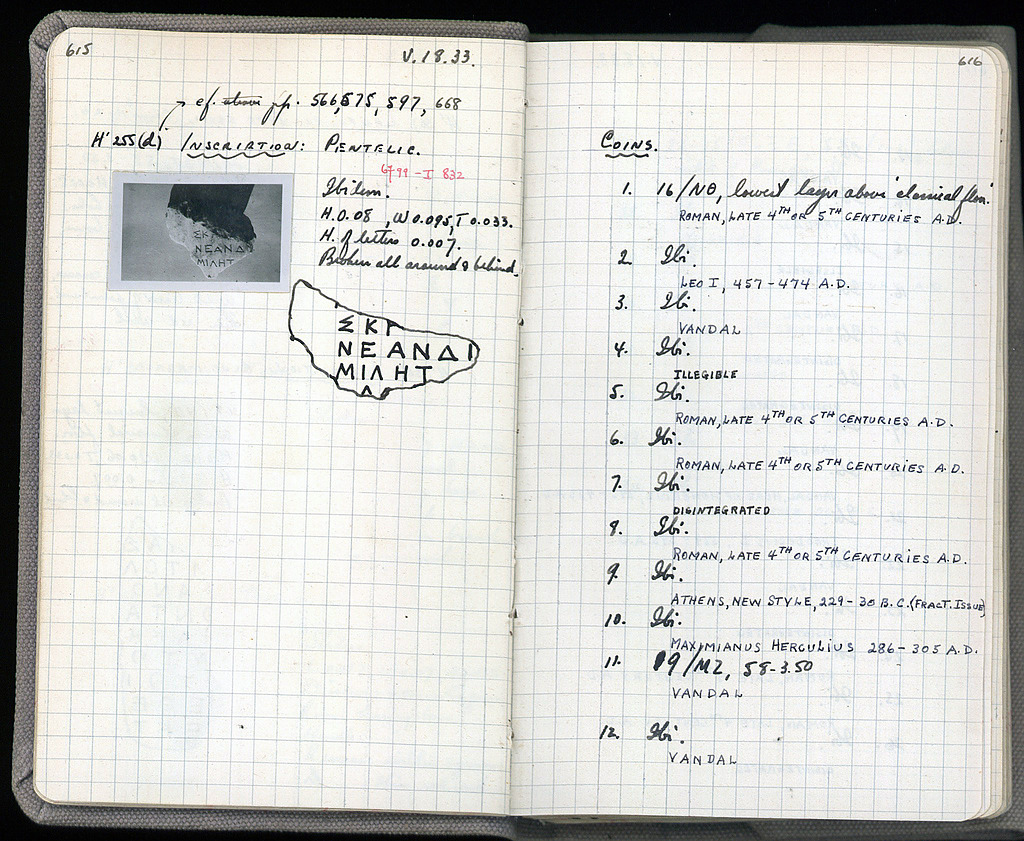 615
V.18.33.
cf. above pp. 566, 575, 597, 668
H' 255(d) INSCRIPTION: PENTELIC.
6799 - I 832
Ibidem.
H. 0.08, W 0.095, T 0.033.
H. of letters 0.007.
Broken all around & behind.
ΣΚ
ΝΕΑΝΔΙ
ΜΙΛΗΤ
ΣΚΓ
ΝΕΑΝΔΙ
ΜΙΛΗΤ
Λ
616
COINS.
1. 16/ΝΘ, lowest layer above classical floor.
ROMAN, LATE 4TH OR 5TH CENTURIES A.D.
2. Ibi.
LEO I, 457-474 A.D.
3. Ibi.
VANDAL
4. Ibi.
ILLEGIBLE
5. Ibi.
ROMAN, LATE 4TH OR 5TH CENTURIES A.D.
6. Ibi.
ROMAN, LATE 4TH OR 5TH CENTURIES A.D.
7. Ibi.
DISINTEGRATED
8. Ibi.
ROMAN, LATE 4TH OR 5TH CENTURIES A.D.
9. Ibi.
ATHENS, NEW STYLE, 229-30 B.C. (FRACT. ISSUE)
10. Ibi.
MAXIMIANUS HERCULIUS 286-305 A.D.
11. 19/ΜΖ, 58-3.50
VANDAL
12. Ibi.
VANDAL